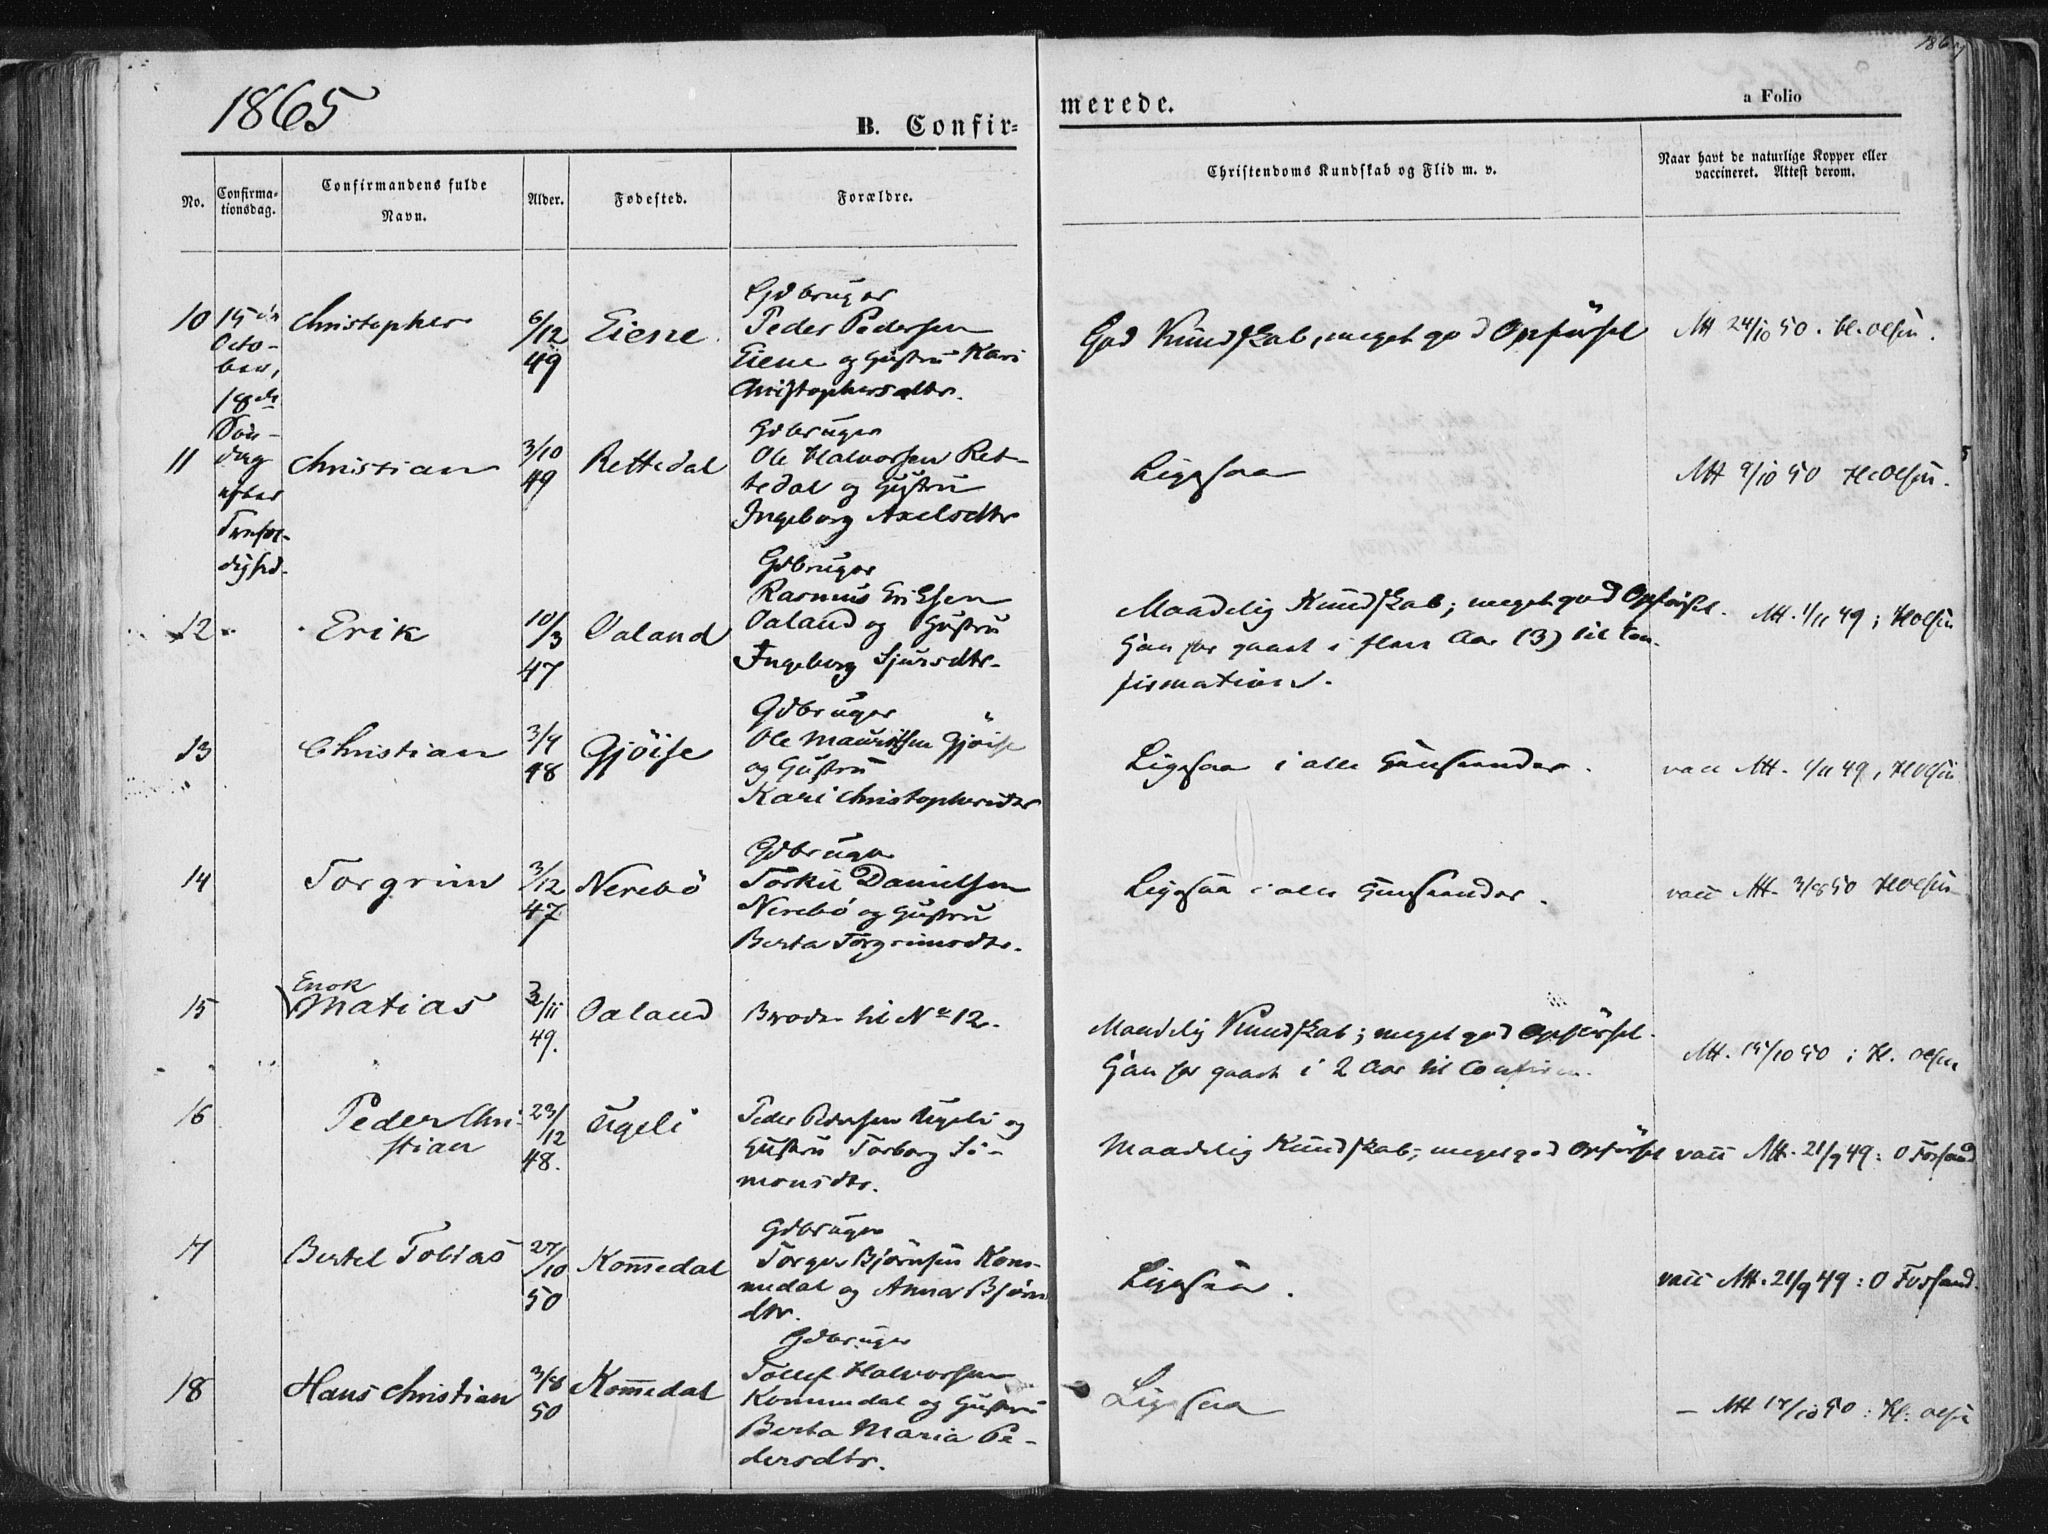 1865
B. Confir=
merede.
a Folio
No.
Confirma-
tionsdag.
Confirmandens fulde
Navn.
Alder.
Fødested.
Forældre.
Christendoms Kundskab og Flid m. v.
Naar havt de naturlige Kopper eller
vaccineret. Attest derom.
10
15de
Octo-
ber,
18de
Søn-
dag
efter
Trefol-
dighed.
Christopher
6/12
49
Eiene
Gdbruger
Peder Pedersen
Eiene og Hustru Kari
Christophersdtr.
God Kundskab, meget god Opførsel
Att 24/10 50. H. Olsen.
11
Christian
3/10
49
Rettedal
Gdbruger
Ole Halvorsen Ret-
tedal og Hustru
Ingeborg Axelsdtr
Ligesaa
Att 9/10 50 H. Olsen.
12
Erik
10/3
47
Oaland
Gdbruger
Rasmus Eriksen
Oaland og Hustru
Ingeborg Sjursdtr.
Maadelig Kundskab; meget god Opførsel.
Han har gaaet i flere Aar (3) til Con-
firmation.
Att. 1/11 49; H Olsen
13
Christian
3/4
48
Gjöise
Gdbruger
Ole Mauritsen Gjöise
og Hustru
Kari Christophersdtr
Ligesaa i alle Henseender.
vacc Att. 1/11 49, H Olsen
14
Torgrim
3/12
47
Nerebö
Gdbruger
Torkil Danielsen
Nerebö og Hustru
Berta Torgrimsdtr.
Ligesaa i alle Henseender.
vacc Att. 3/8 50 H Olsen
15
Enok
Matias
2/11
49.
Oaland
Broder til No 12.
Maadelig Kundskab; meget god Opførsel.
Han har gaaet i 2 Aar til Confirm.
Att. 15/10 50; H. Olsen
16
Peder Chri-
stian
23/
12
48.
Ugeli
Peder Pedersen Ugeli og
Hustru Torborg Si-
monsdtr.
Maadelig Kundskab; meget god Opførsel
vacc Att. 21/9 49: O Forsand
17
Bertel Tobias
27/
10
50
Kommedal
Gdbruger
Torger Bjørnsen Kom-
medal og Anna Bjørns
dtr.
Ligesaa.
vacc Att. 21/9 49: O Forsand.
18
Hans Christian
3/8
50
Kommedal
Gdbruger
Tollef Halvorsen
Kommedal og Hustru
Berta Maria Pe-
dersdtr.
Ligesaa
— Att 17/10 50: H: Olsen